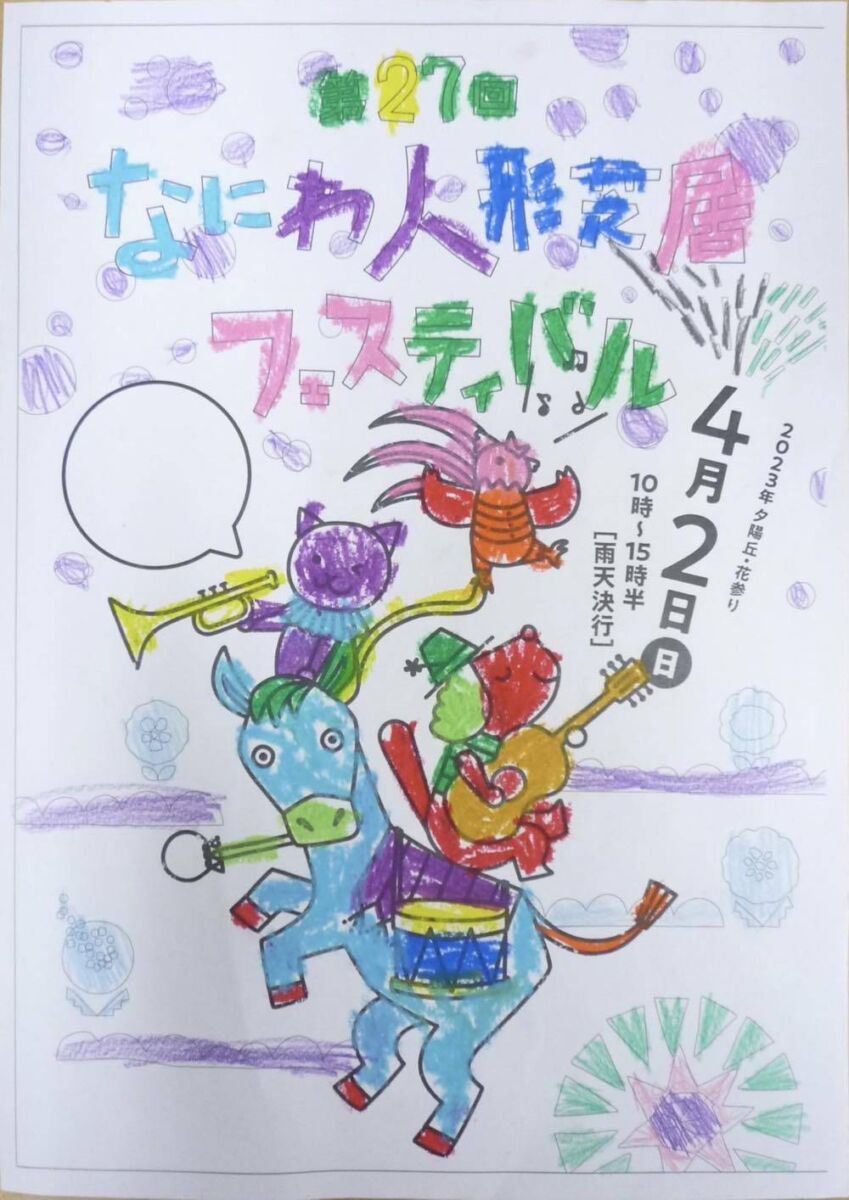 第27回
なにわ人形芝居
フェスティバル
2023年 夕陽丘・花参り
4月2日日
10時～15時半
［雨天決行］